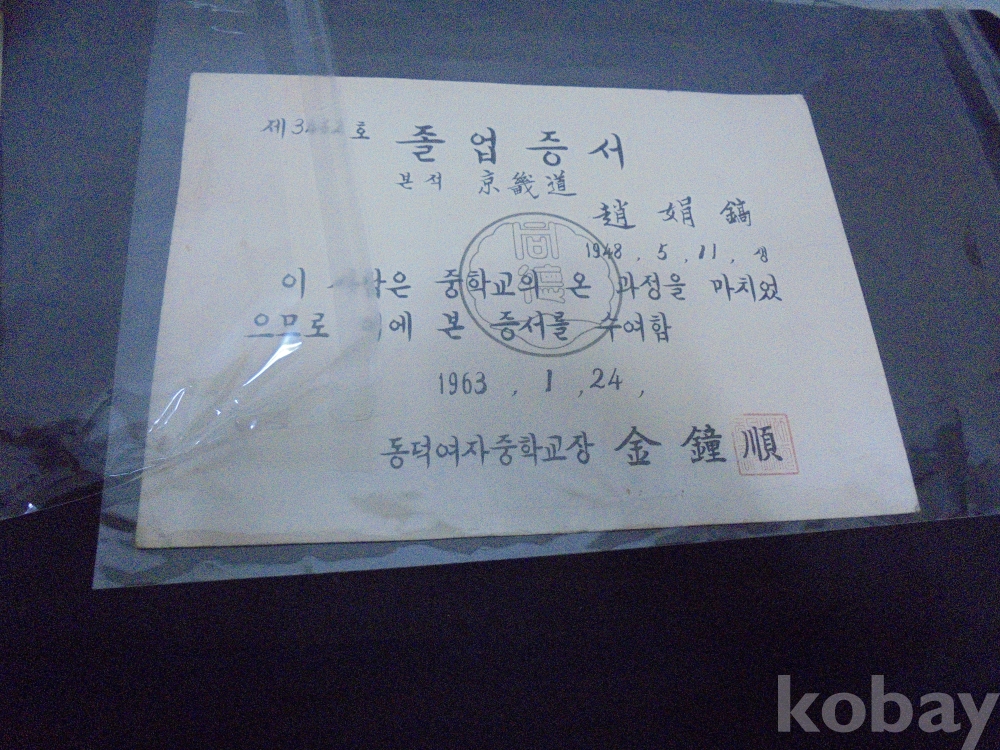 졸업증서
본적 京畿道
趙娟鎬
1948, 5, 11, 생
이 사람은 중학교의 온 과정을 마치었
으므로 이에 본 증서를 수여함
1963, 1, 24,
동덕여자중학교장 金鐘順
同德
kobay